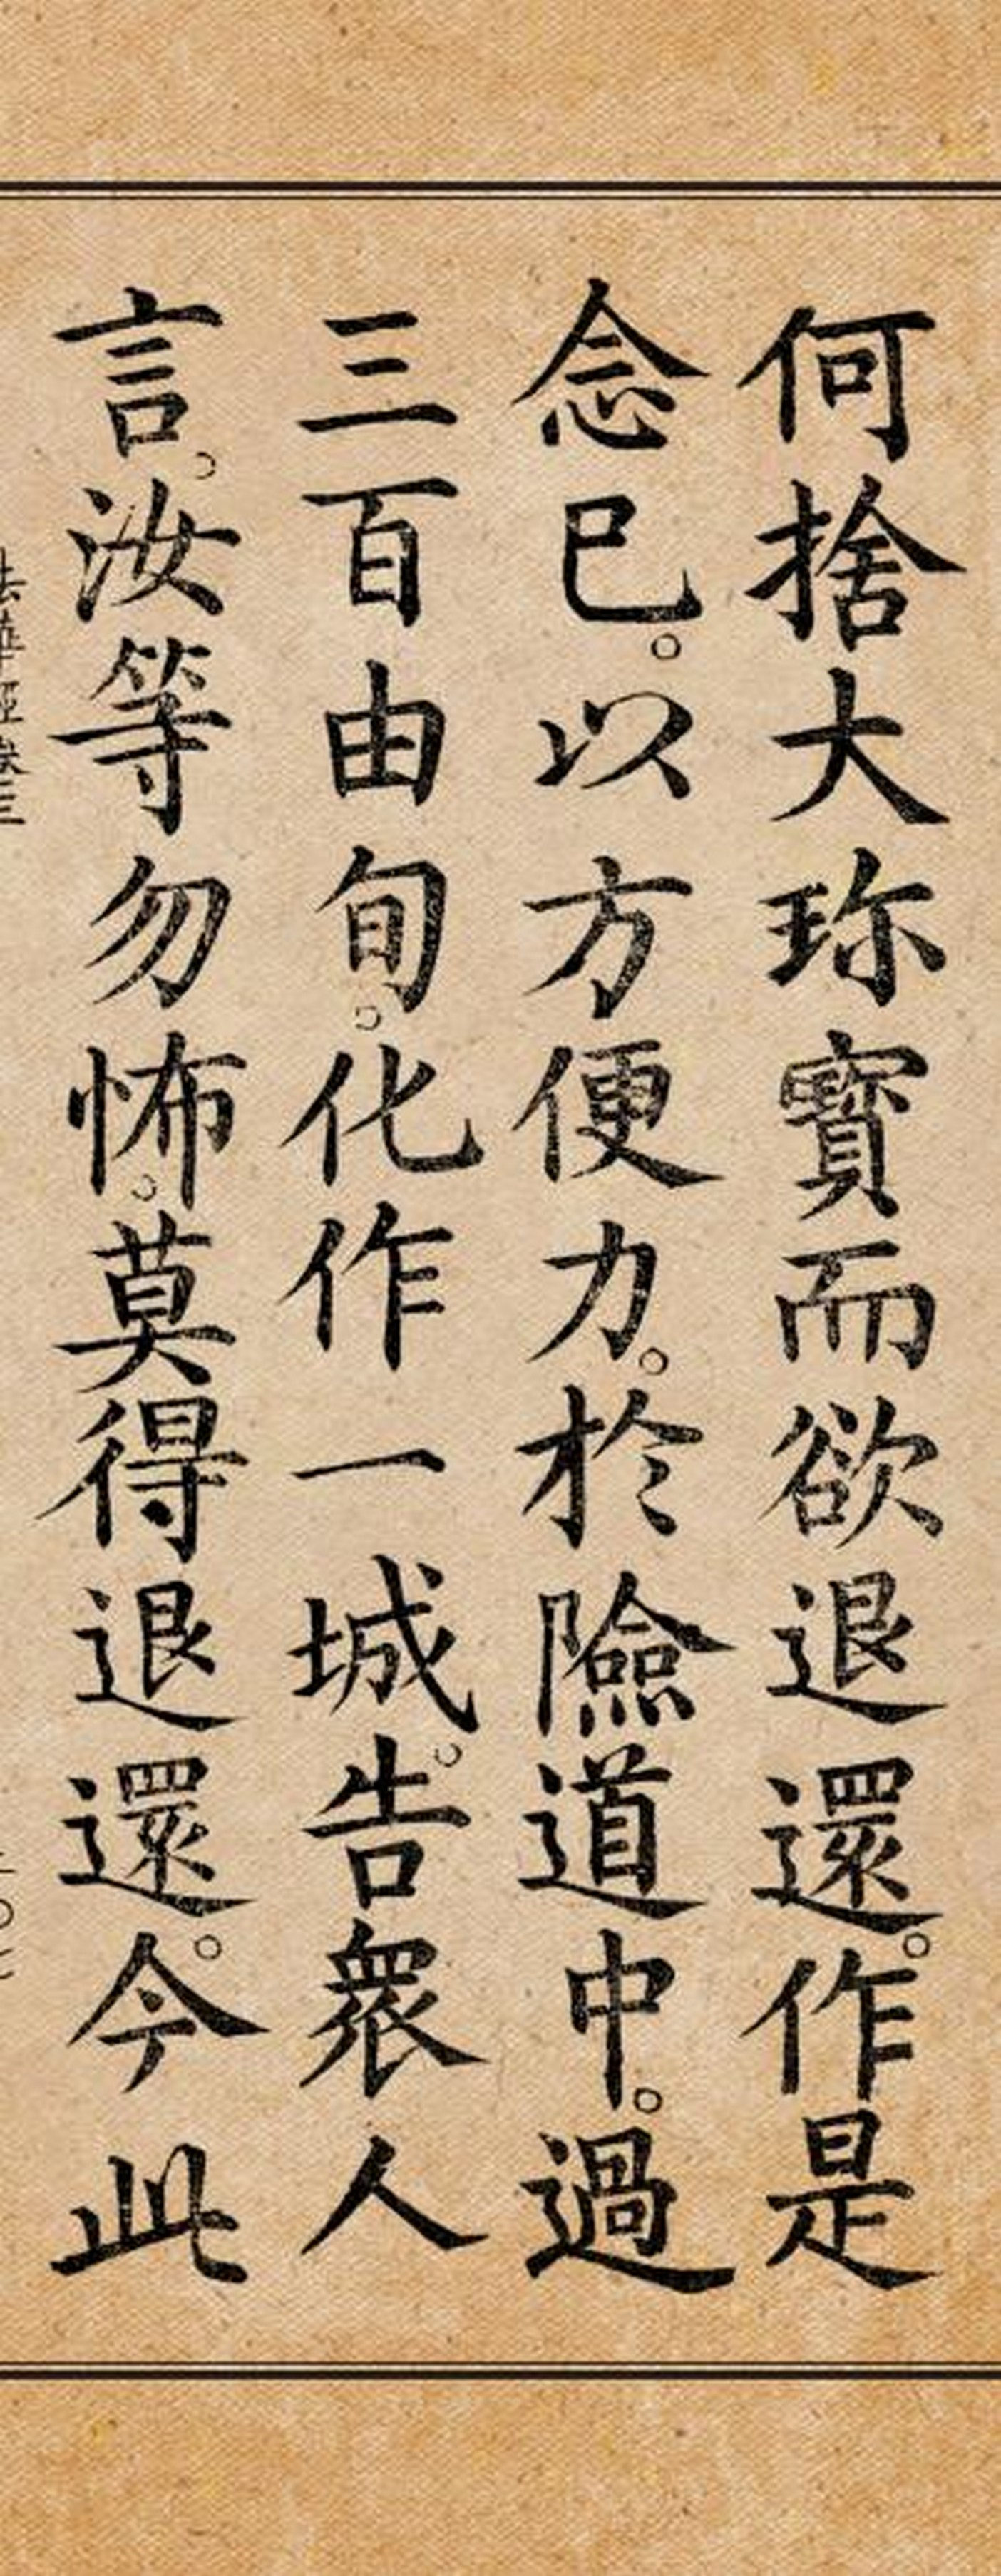 何捨大珎寶而欲退還。作是
念已。以方便力。於險道中。過
三百由旬。化作一城。告衆人
言。汝等勿怖。莫得退還。今此
法華經卷三